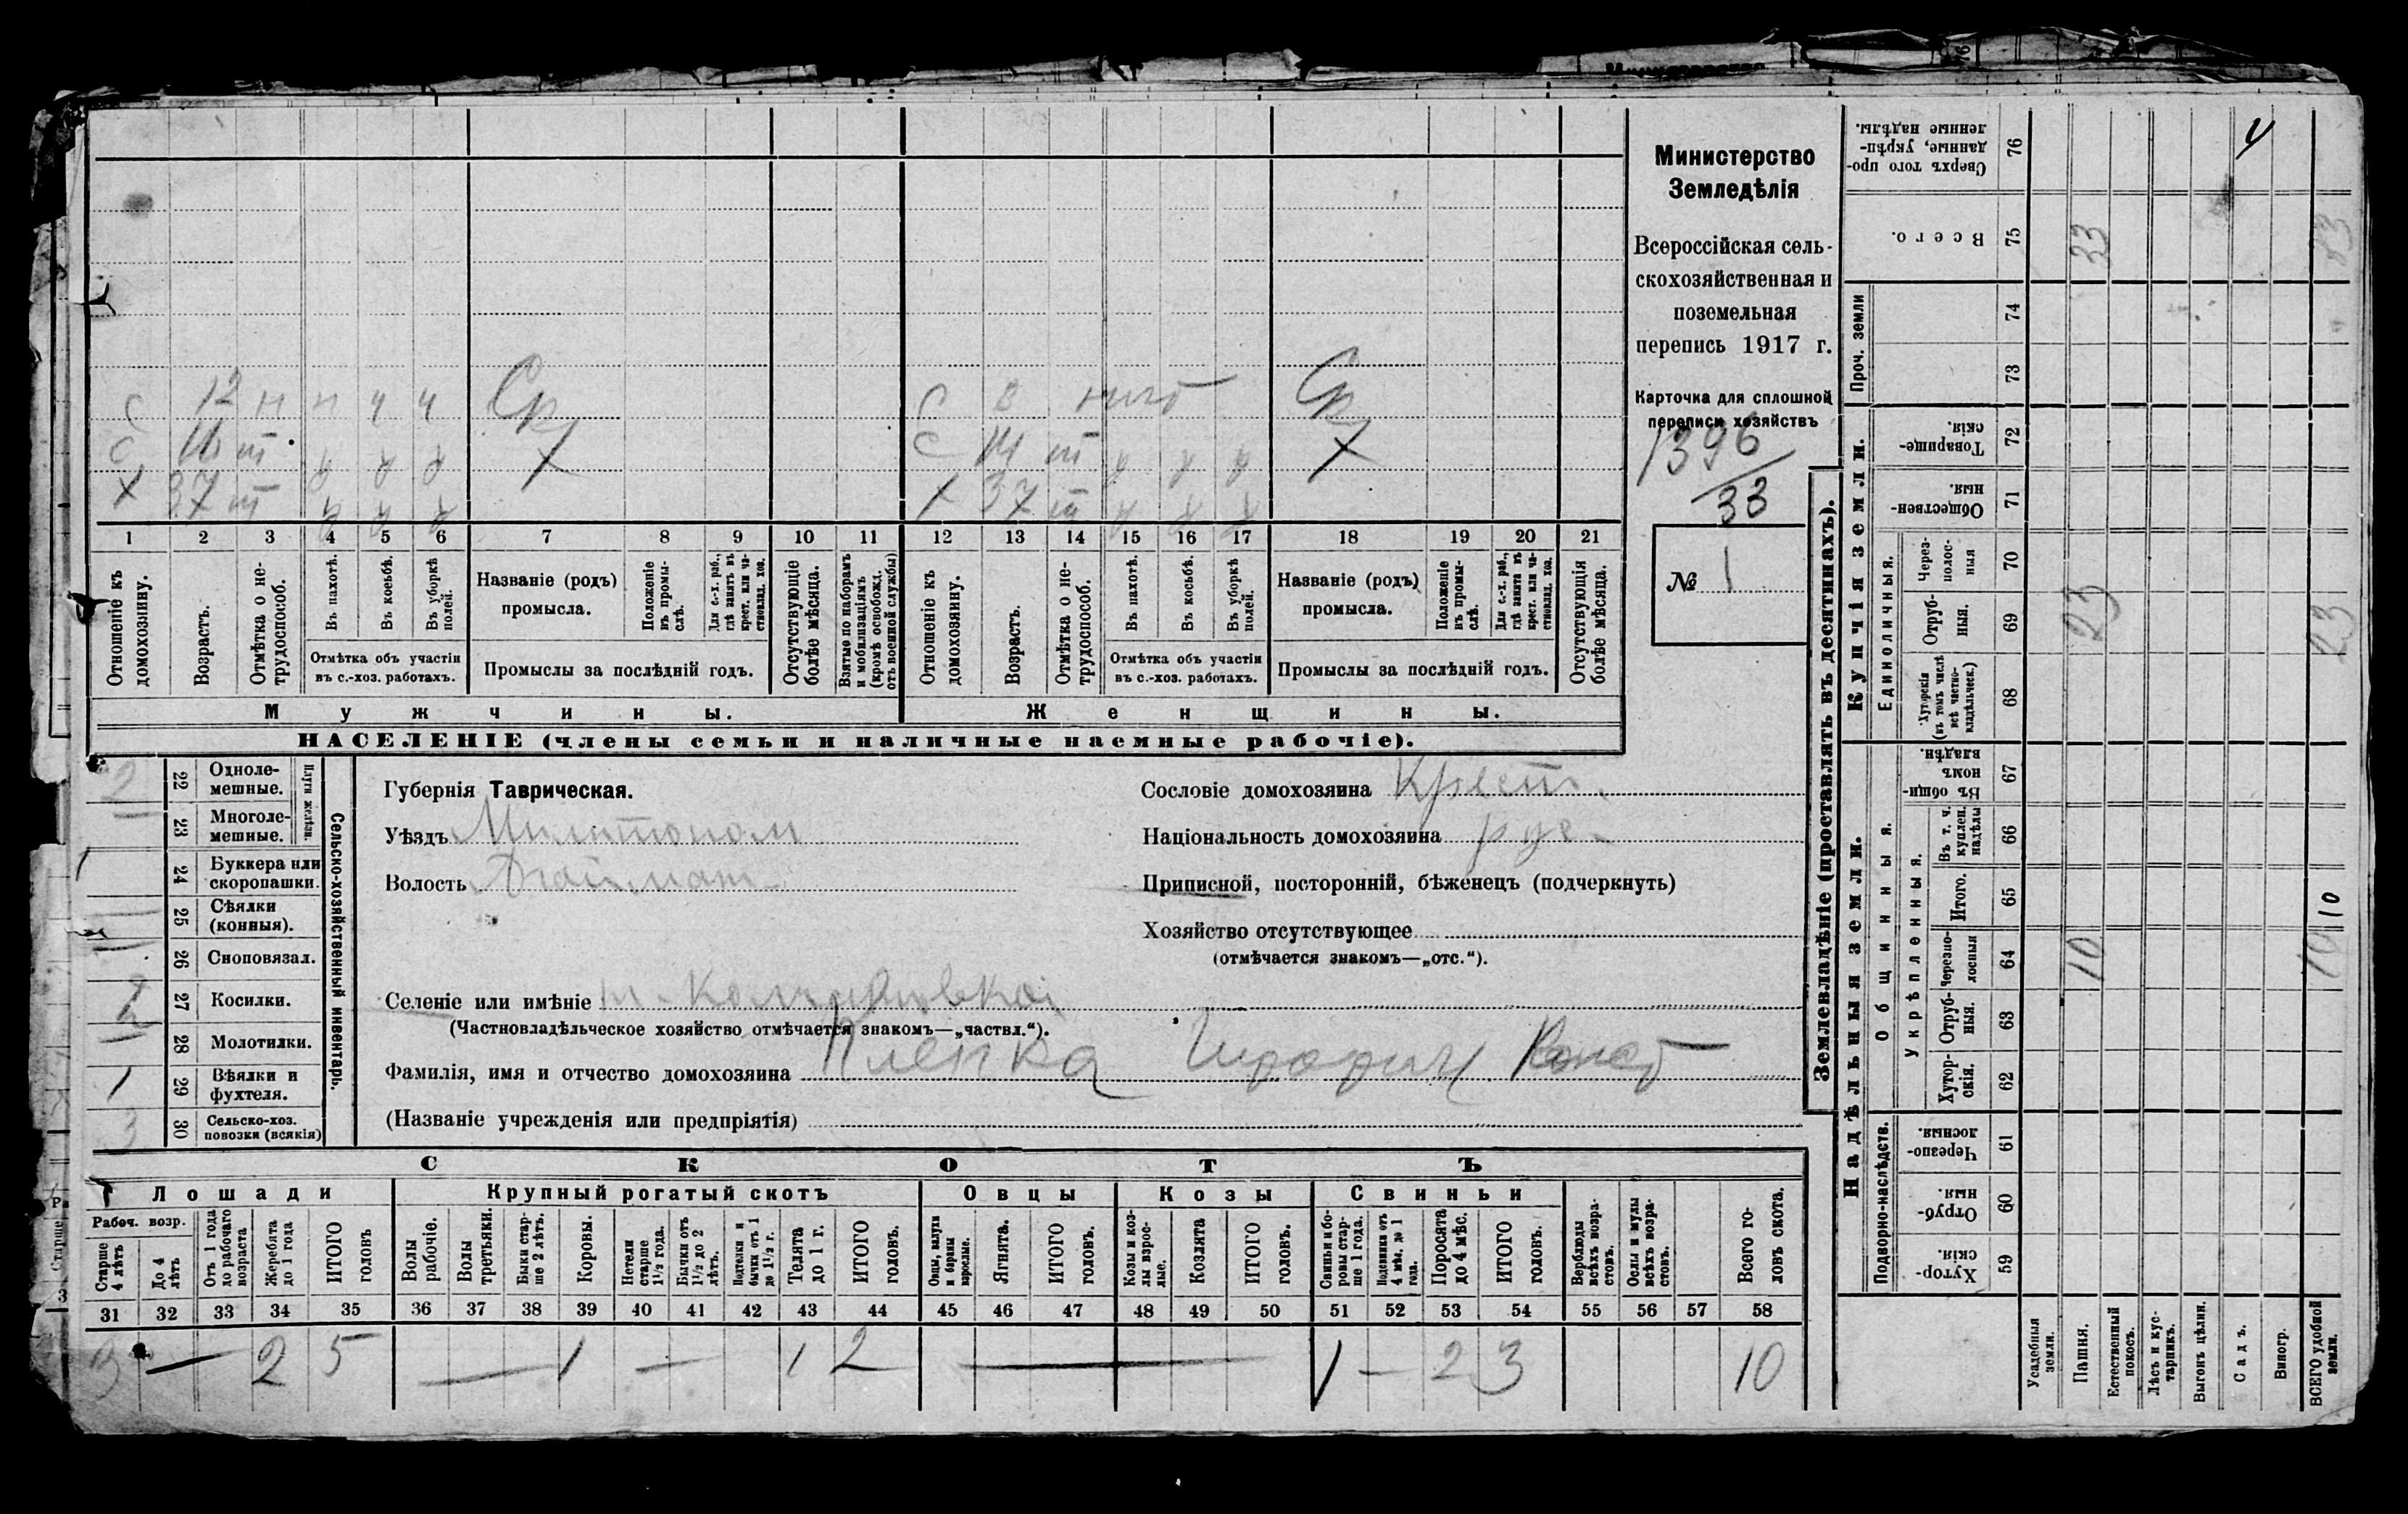 Министерство
Земледѣлія
Всероссійская сель-
скохозяйственная и
поземельная
перепись 1917 г.
Карточка для сплошной
переписи хозяйствъ
1396
33
№ 1
С 12 н п ч ч Ср
С 3 Ср
С 14 т
Х 37 т
Х
Х 37 т
Х
1 2 3 4 5 6 7 8 9 10 11 12 13 14 15 16 17 18 19 20 21
Отношеніе къ домохозяину.
Возрастъ.
Отмѣтка о не-трудоспособ.
Въ пахотѣ.
Въ косьбѣ.
Въ уборкѣ полей.
Отмѣтка объ участіи
въ с.-хоз. работахъ.
Названіе (родъ)
промысла.
Положеніе въ промы-слѣ.
Для с.-х. раб., гдѣ занятъ въ крест. или ча-стновлад. хоз.
Промыслы за послѣдній годъ.
Отсутствующіе болѣе мѣсяца.
Взятые по наборамъ и мобилизаціямъ (кромѣ освобожд. отъ военной службы)
Отношеніе къ домохозяину.
Возрастъ.
Отмѣтка о не-трудоспособ.
Въ пахотѣ.
Въ косьбѣ.
Въ уборкѣ полей.
Отмѣтка объ участіи
въ с.-хоз. работахъ.
Названіе (родъ)
промысла.
Положеніе въ промы-слѣ.
Для с.-х. раб., гдѣ занята въ крест. или ча-стновлад. хоз.
Промыслы за послѣдній годъ.
Отсутствующія болѣе мѣсяца.
Мужчины.
Женщины.
НАСЕЛЕНІЕ (члены семьи и наличные наемные рабочіе).
Сельско-хозяйственный инвентарь.
Плуги желѣзн.
2 22 Одноле-мешные.
23 Многоле-мешные.
24 Буккера или скоропашки.
25 Сѣялки (конныя).
26 Сноповязал.
2 27 Косилки.
28 Молотилки.
1 29 Вѣялки и фухтеля.
3 30 Сельско-хоз. повозки (всякія)
Губернія Таврическая.
Уѣздъ Мелитопол
Волость
Сословіе домохозяина Крест.
Національность домохозяина рус.
Приписной, посторонній, бѣженецъ (подчеркнуть)
Хозяйство отсутствующее
(отмѣчается знакомъ—„отс.“).
Селеніе или имѣніе
(Частновладѣльческое хозяйство отмѣчается знакомъ—„частвл.“).
Фамилія, имя и отчество домохозяина
(Названіе учрежденія или предпріятія)
СКОТЪ
Лошади
Крупный рогатый скотъ
Овцы
Козы
Свиньи
Рабоч. возр.
Старше 4 лѣтъ
До 4 лѣтъ
Отъ 1 года до рабочаго возраста
Жеребята до 1 года
ИТОГО головъ
Волы рабочіе.
Волы третьяки.
Быки стар-ше 2 лѣтъ.
Коровы.
Нетели старше 1½ года.
Бычки отъ 1½ до 2 лѣтъ.
Подтелки и бычки отъ 1 до 1½ г.
Телята до 1 г.
ИТОГО головъ.
Овцы, валухи и бараны взрослые.
Ягнята.
ИТОГО головъ.
Козы и коз-лы взрос-лые.
Козлята
ИТОГО головъ.
Свиньи и бо-ровы стар-ше 1 года.
Подсвинки отъ 4 мѣс. до 1 года.
Поросята до 4 мѣс.
ИТОГО головъ.
Верблюды всѣхъ возра-стовъ.
Ослы и мулы всѣхъ возра-стовъ.
Всего го-ловъ скота.
31 32 33 34 35 36 37 38 39 40 41 42 43 44 45 46 47 48 49 50 51 52 53 54 55 56 57 58
3 — 2 5 — 1 — 1 2 — 1 — 2 3 10
Землевладѣніе (проставлять въ десятинахъ).
Проч. земли
Купчія земли.
Единоличныя.
Надѣльныя земли.
Общинныя.
Укрѣпленныя.
Подворно-наслѣдств.
Сверхъ того про-данные, укрѣп-ленные надѣлы. 76
Всего. 75 33
74
73
Товарище-скія. 72
Обществен-ныя. 71
Через-полос-ныя 70
Отруб-ныя. 69 23 23
Хуторскія (въ томъ числѣ всѣ частно-владѣльческ.) 68
Въ общи-номъ владѣн. 67
Въ т. ч. куплен. надѣлы 66
Итого. 65 10
Черезпо-лосныя 64 10 10
Отруб-ныя. 63
Хутор-скія. 62
Черезпо-лосныя. 61
Отруб-ныя. 60
Хутор-скія. 59
Усадебныя земли.
Пашня.
Естественный покосъ.
Лѣсъ и кус-тарникъ.
Выгонъ цѣлин.
Садъ.
Виногр.
ВСЕГО удобной земли.